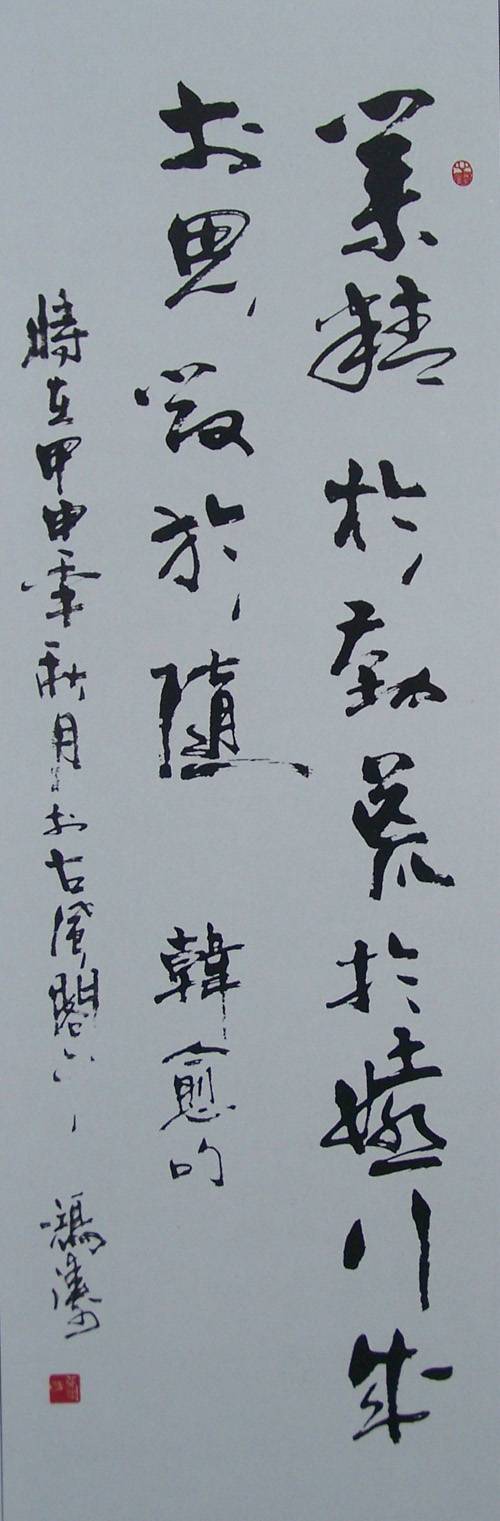 業精於勤荒於嬉行成
於思毀於隨 韓愈句
時在甲申年秋月於古風閣 馮濤